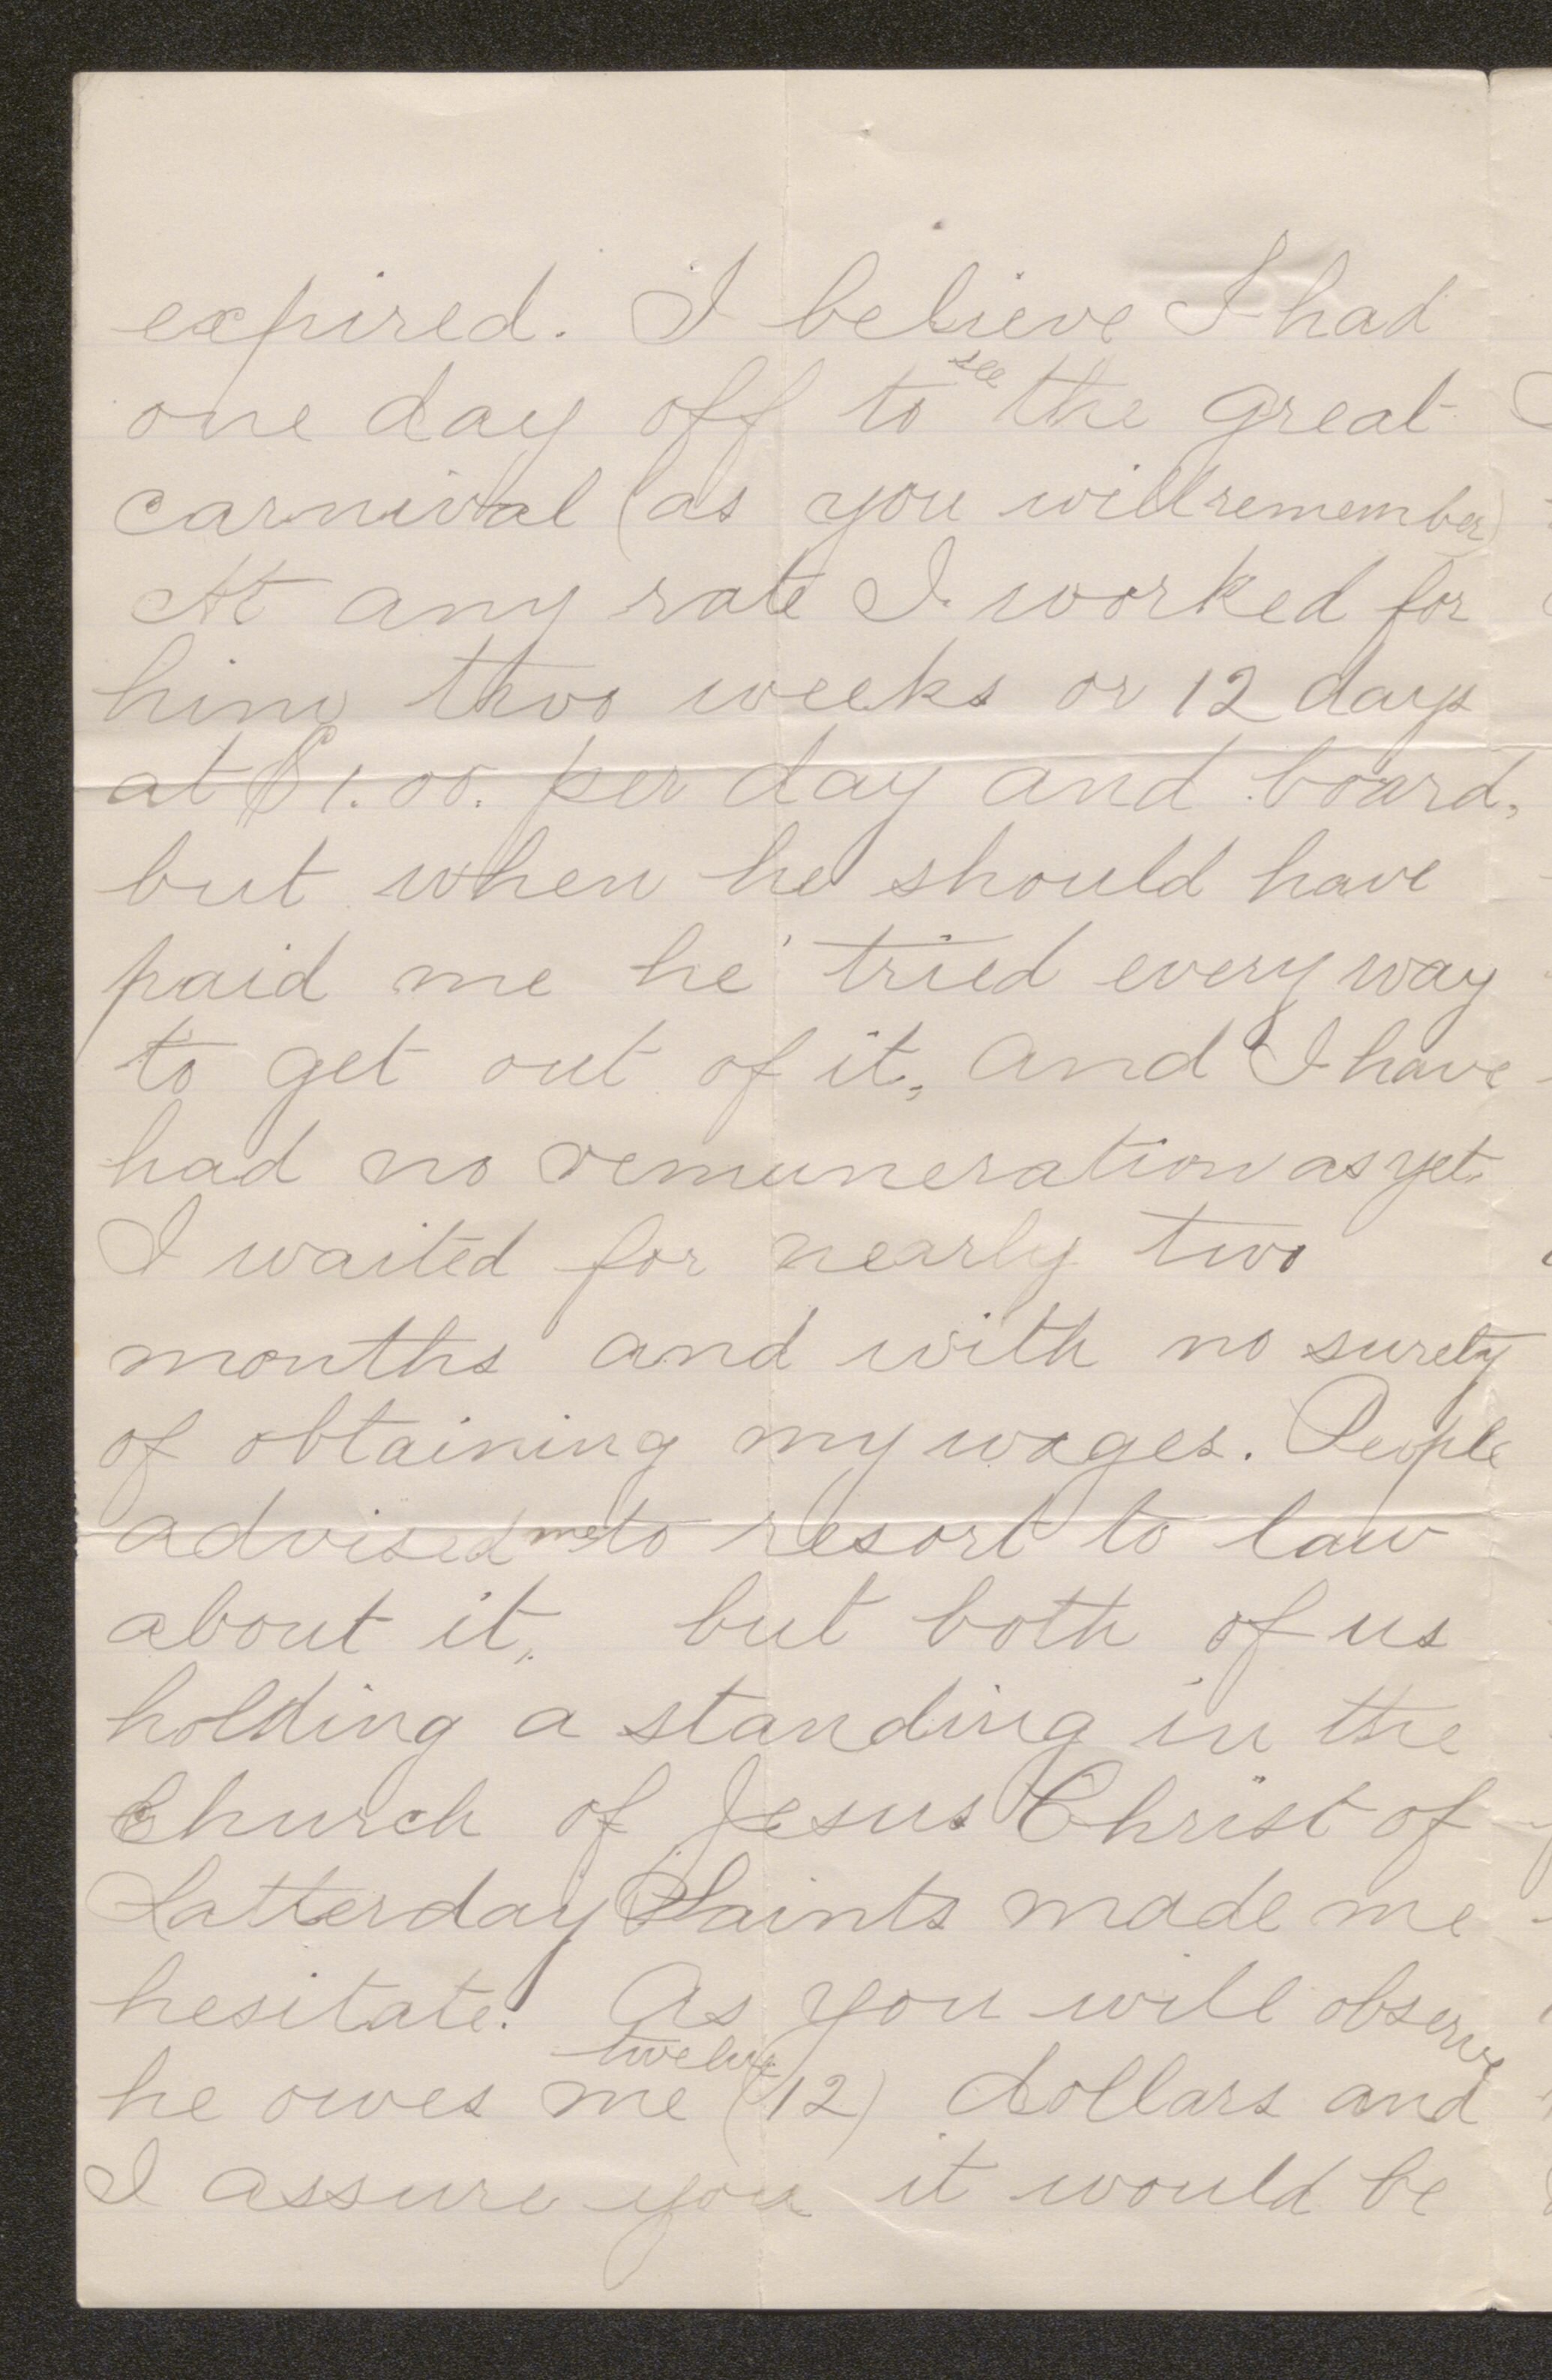 expired. I believe I had
one day off to see the great
carnival (as you will remember)
At any rate I worked for
him two weeks or 12 days
at $1.00. per day and board,
but when he should have
paid me he tried every way
to get out of it, and I have
had no remuneration as yet.
I waited for nearly two
months and with no surety
of obtaining my wages. People
advised me to resort to law
about it, but both of us
holding a standing in the
Church of Jesus Christ of
Latterday Saints made me
hesitate. As you will observe
he owes me twelve (12) dollars and
I assure you it would be